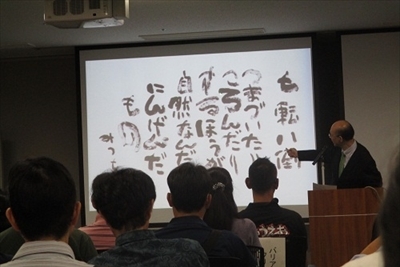 七転八倒
つまづいたり
ころんだり
するほうが
自然なんだな
にんげんだ
もの
みつを
バリア